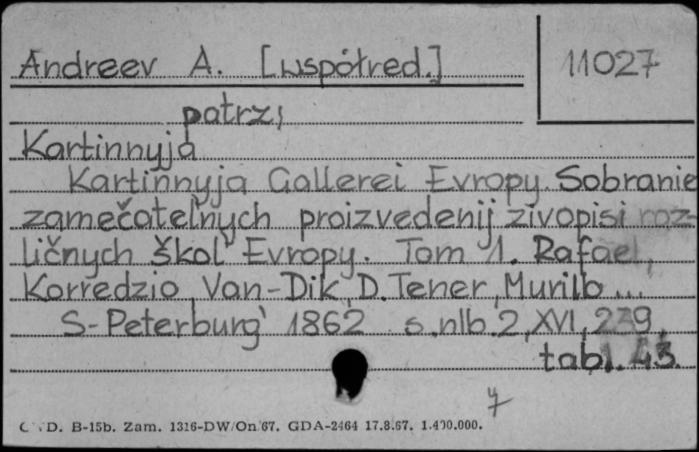 Andreev A. [współred.] 11027
patrz;
Kartinnyja
Kartinnyja Gallerei Evropy. Sobranie
zamečatel'nych proizvedenij živopisi roz
ličnych škol' Evropy. Tom 1. Rafael,
Korredzio, Van-Dik, D. Tener, Murilo...
S-Peterburg' 1862 s. nlb. 2, XVI, 239,
tabl. 43.
D. B-15b. Zam. 1316-DW/On/67. GDA-2464 17.8.67. 1.400.000.